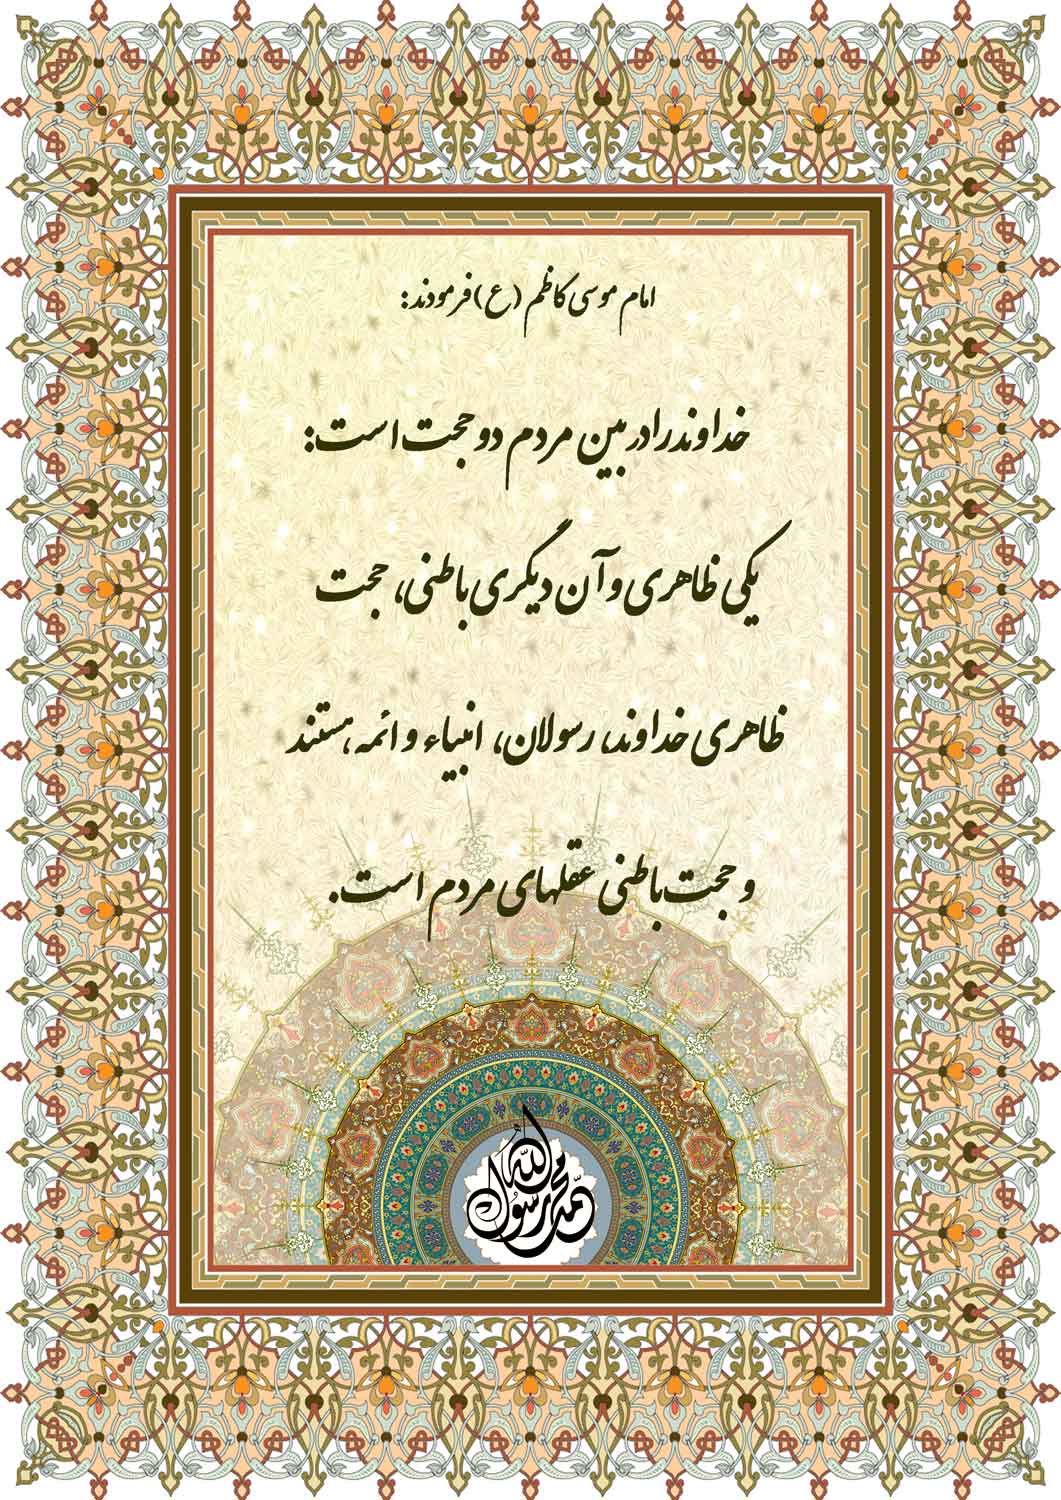 امام موسی کاظم (ع) فرمودند:
خداوند را در بین مردم دو حجت است:
یکی ظاهری و آن دیگری باطنی، حجت
ظاهری خداوند، رسولان، انبیاء و ائمه هستند
و حجت باطنی عقلهای مردم است.
محمد رسول الله